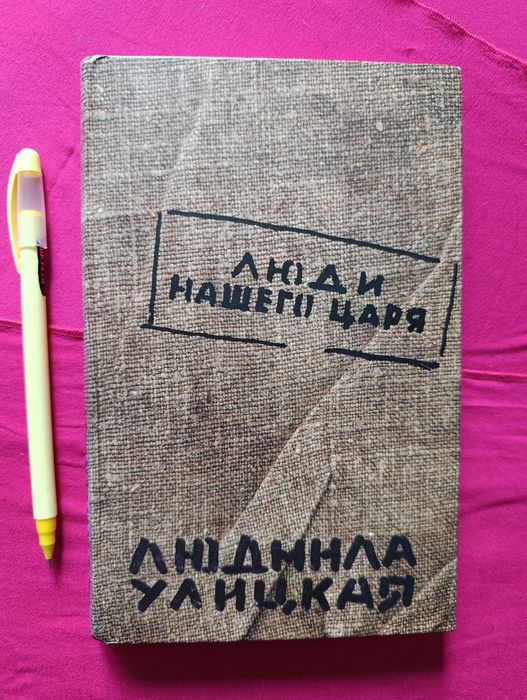 ЛЮДИ
НАШЕГО ЦАРЯ
ЛЮДМИЛА
УЛИЦКАЯ